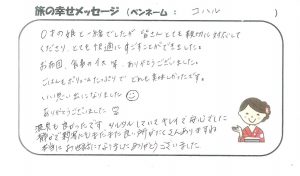 旅の幸せメッセージ (ペンネーム： コハル )
0才の娘と一緒でしたが 皆さんとても親切に対応して
くださり、とても快適にすごすことができました。
お布団、食事のイス 等、ありがとうございました。
ごはんもボリュームたっぷりで どれも美味しかったです。
いい思い出になりました
ありがとうございました
温泉も良かったです。ツルツルしていてキレイで 安心でした
本当にお世話になりました。ありがとうございました。